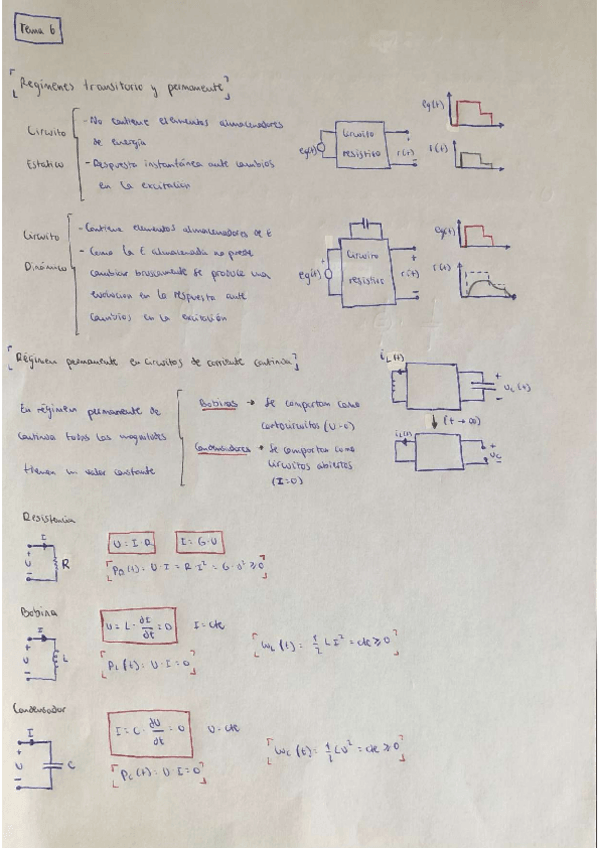 Tema 6
Regímenes transitorio y permanente
Circuito Estático
- No contiene elementos almacenadores
de energía
- Respuesta instantánea ante cambios
en la excitación
eg(t)
Circuito
resistivo
r(t)
+
-
eg(t)
r(t)
Circuito Dinámico
- Contiene elementos almacenadores de E
- Como la E almacenada no puede
cambiar bruscamente se produce una
evolución en la respuesta ante
cambios en la excitación
eg(t)
Circuito
resistivo
r(t)
+
-
eg(t)
r(t)
Régimen permanente en circuitos de corriente continua
En régimen permanente de
continua todas las magnitudes
tienen un valor constante
Bobinas → Se comportan como
cortocircuitos (U=0)
Condensadores → Se comportan como
circuitos abiertos
(I=0)
iL(t)
+
-
(t→∞)
iL(t)
+
Uc
-
Resistencia
I
+
U
-
R
U = I·R
I = G·U
PR(t) = U·I = R·I² = G·U² ≥ 0
Bobina
I
+
U
-
L
U = L·∂I/∂t = 0
I = cte
PL(t) = U·I = 0
WL(t) = 1/2 LI² = cte ≥ 0
Condensador
I
+
U
-
C
I = C·∂U/∂t = 0
U = cte
Pc(t) = U·I = 0
Wc(t) = 1/2 CU² = cte ≥ 0